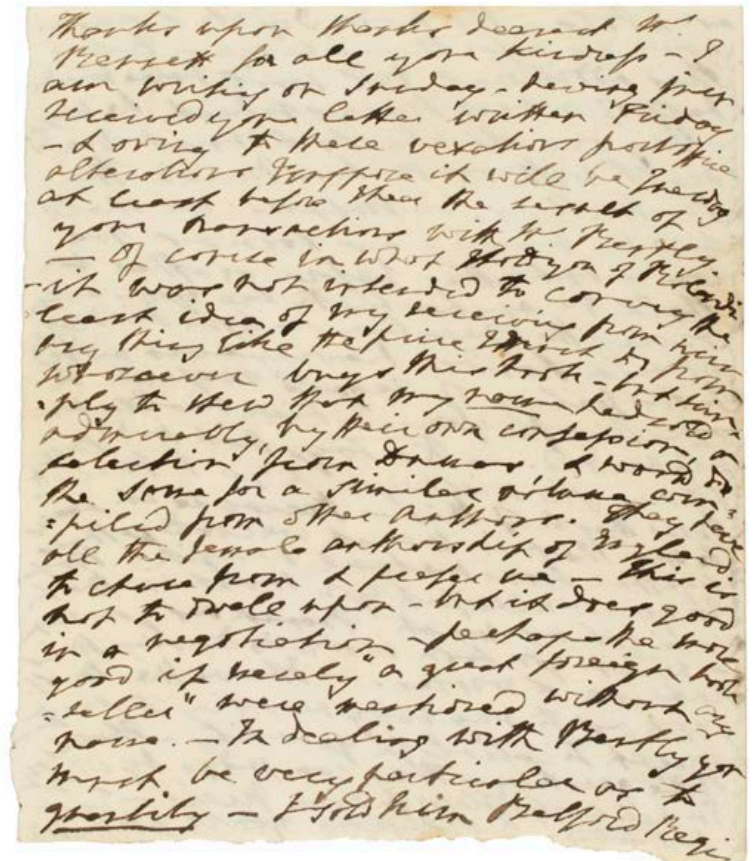 Thanks upon thanks dearest Mr.
Bennett for all your kindness - I
am writing on Sunday - having just
received your letter written Friday
- & owing to these vexatious postoffice
alterations I suppose it will be Tuesday
at least before I hear the result of
your transactions with Mr Bently
- Of course in what I told you of
- it was not intended to convey the
least idea of my receiving from him
any thing like the price I must by from
whosoever buys this book - but sim-
:ply to shew that my name had sold a
admirably, by their own confession, a
selection from Dramas & would do
the same for a similar volume com:
:piled from other Authors. They have
all the female authorship of England
to chuse from & prefer me - This is
not to dwell upon - but it does good
in a negotiation - perhaps the more
good if merely "a great foreign book
:seller" were mentioned without any
name. - In dealing with Bently you
must be very particular as to
quantity - I sold him Belford Regis